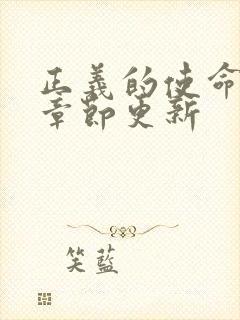 正義的使命
章節更新
笑藍